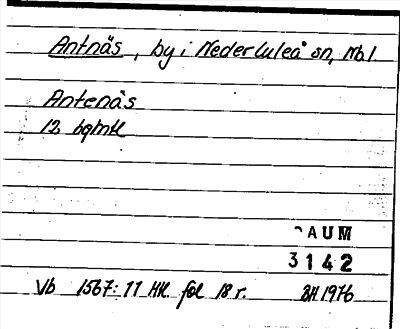 Antnäs, by i Nederluleå sn, Nbl
Antenäs
12 bqmk
AUM
3142
Vb 1567: 11 HK. fol 18 r. BH 1976